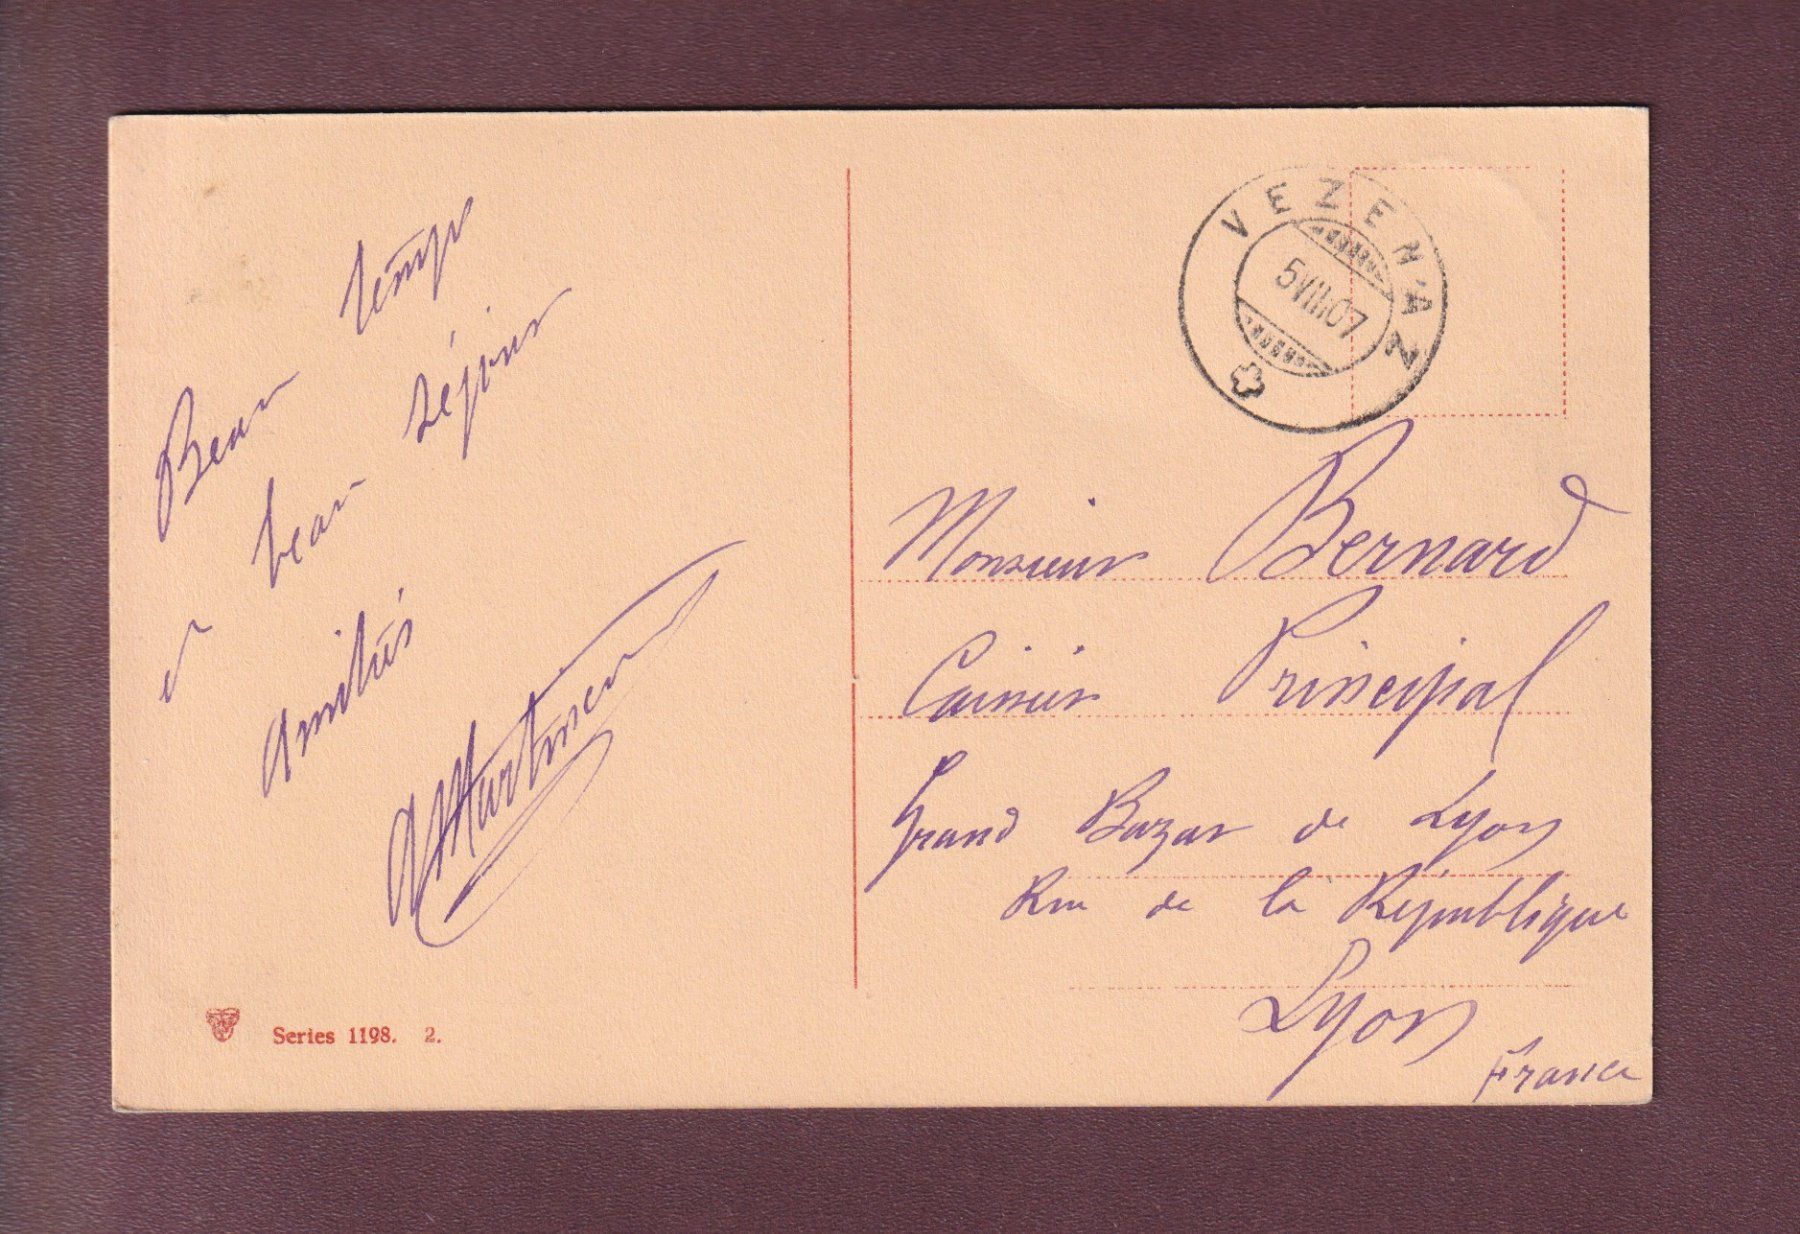 Beau temps
et beau séjour
Amitiés
VEZENAZ
5 VIII 07
Monsieur Bernard
Caissier Principal
Grand Bazar de Lyon
Rue de la République
Lyon
France
Series 1198. 2.